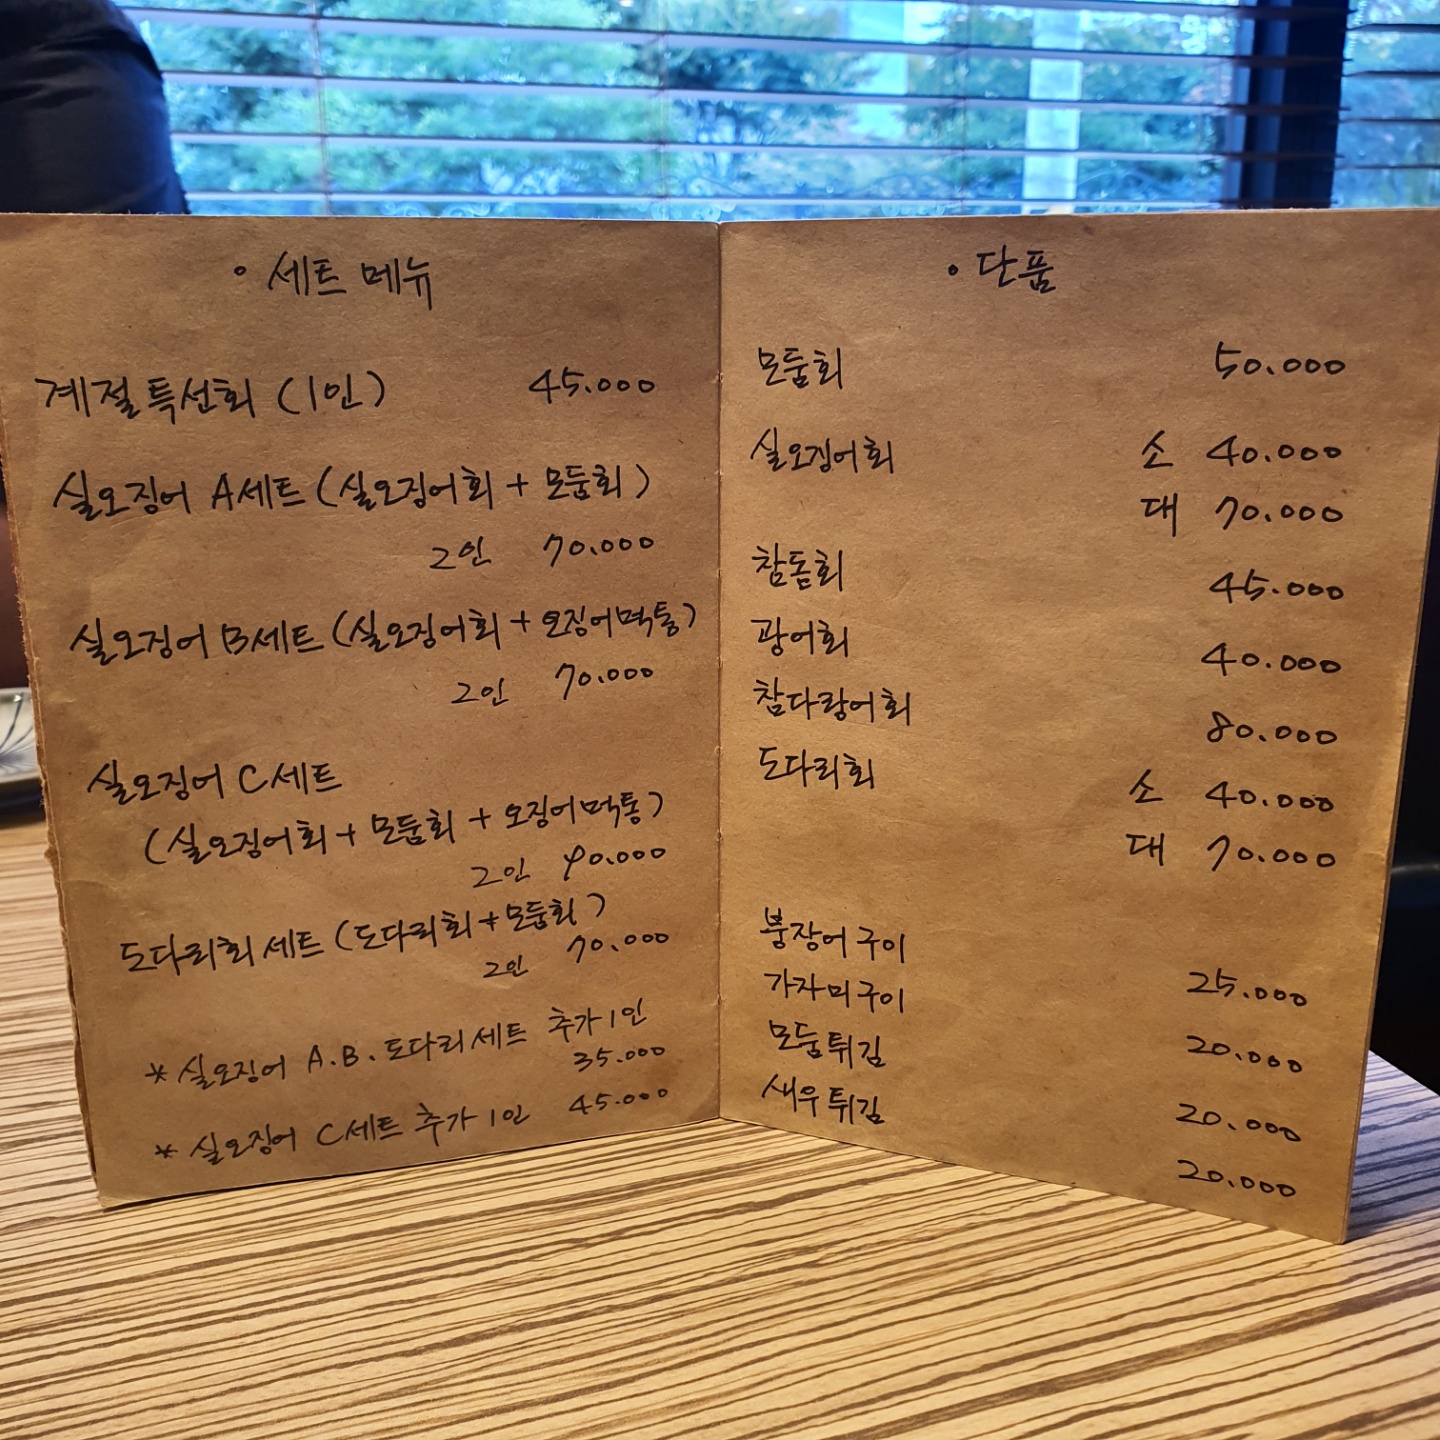 • 세트 메뉴
계절특선회 (1인) 45.000
실오징어 A세트 (실오징어회 + 모둠회)
2인 70.000
실오징어 B세트 (실오징어회 + 오징어먹통)
2인 70.000
실오징어 C세트
(실오징어회 + 모둠회 + 오징어먹통)
2인 90.000
도다리회 세트 (도다리회 + 모둠회)
2인 70.000
* 실오징어 A.B.도다리세트 추가1인
35.000
* 실오징어 C세트 추가1인 45.000
• 단품
모둠회 50.000
실오징어회 소 40.000
대 70.000
참돔회 45.000
광어회 40.000
참다랑어회 80.000
도다리회 소 40.000
대 70.000
붕장어구이 25.000
가자미구이 20.000
모둠튀김 20.000
새우튀김 20.000